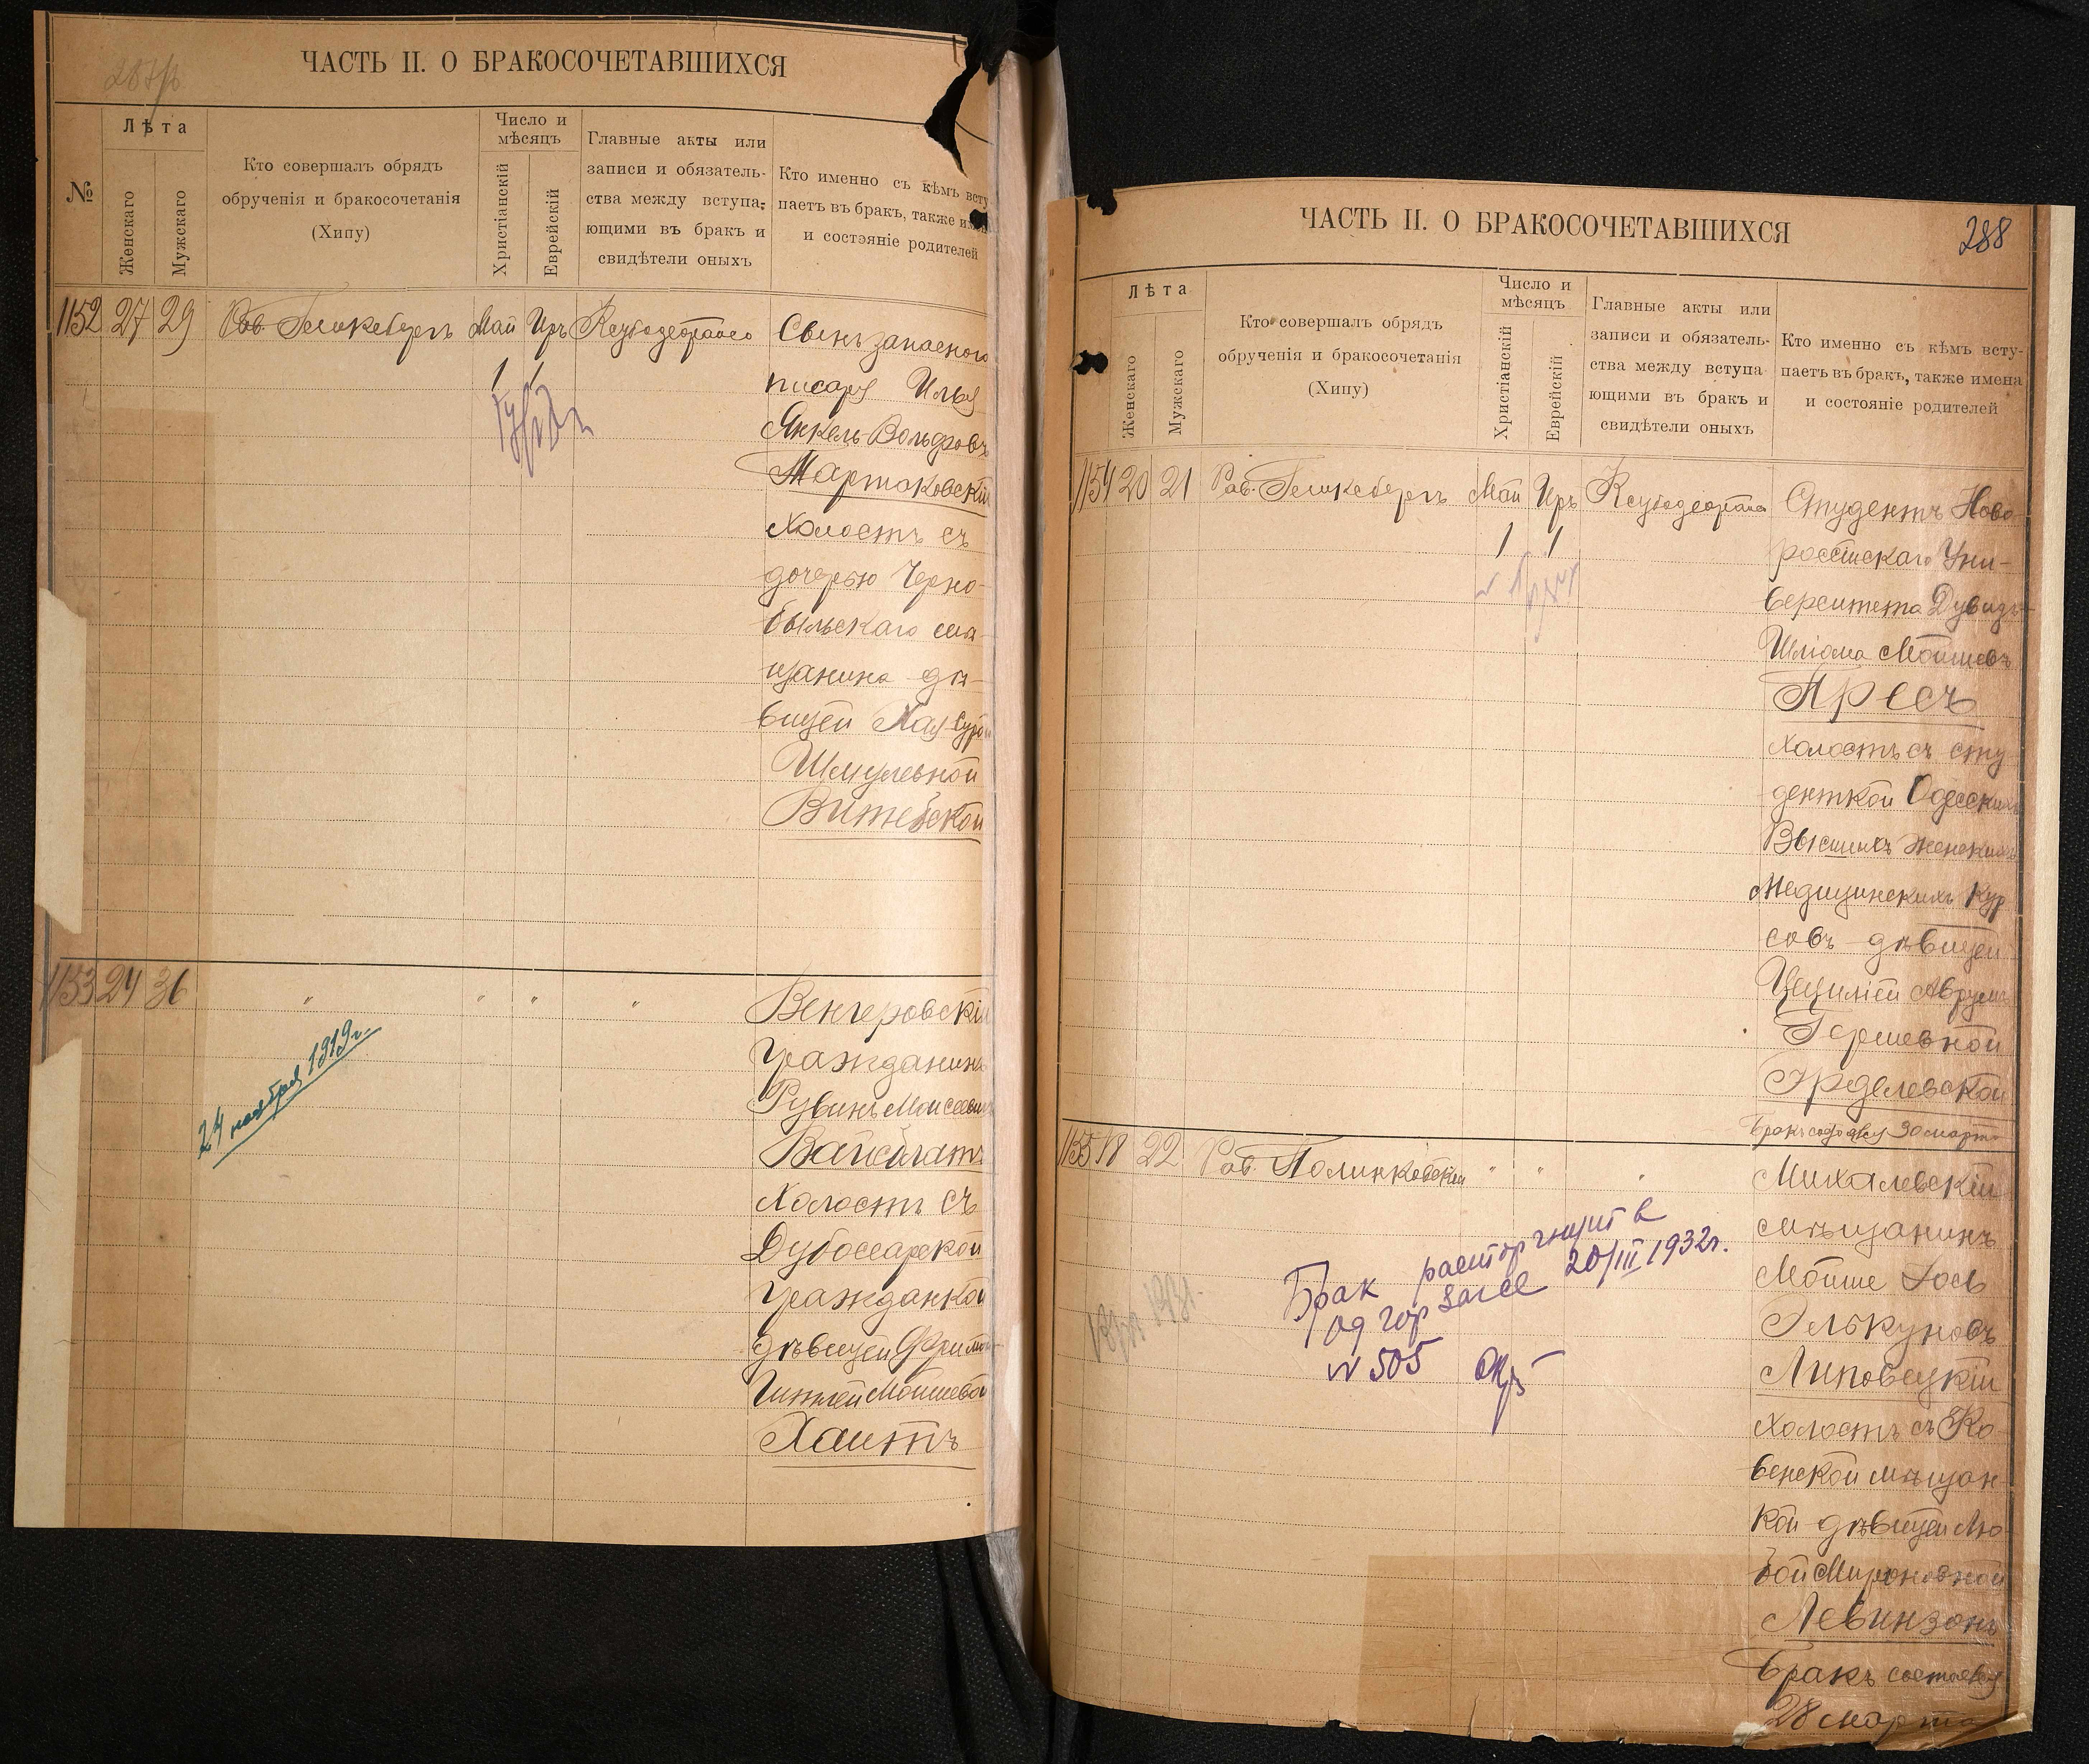 ЧАСТЬ II. О БРАКОСОЧЕТАВШИХСЯ
№
Лѣта
Женскаго
Мужскаго
Кто совершалъ обрядъ
обрученія и бракосочетанія
(Хипу)
Число и
мѣсяцъ
Христіанскій
Еврейскій
Главные акты или
записи и обязатель-
ства между вступа-
ющими въ бракъ и
свидѣтели оныхъ
Кто именно съ кѣмъ всту
паетъ въ бракъ, также им
и состояніе родителей
1152 27 29 Май Иръ Сынъ запасного
1 1
писаря Илья
Янкель Вольфовъ
Мартаковскій
Холостъ съ
дочерью Черно-
быльскаго мѣ-
щанина дѣ-
вицей Хая Сурой
Шмулевной
Витебской
1153 24 36 " " " " Венгеровскій
Гражданинъ
Рувинъ Моисеевичъ
Вайсблатъ
Холостъ съ
Дубоссарской
Гражданкой
дѣвицей Фрима
Гитлей Мойшевой
Хаитъ
24 ноября 1919 г.
ЧАСТЬ II. О БРАКОСОЧЕТАВШИХСЯ
288
Лѣта
Женскаго
Мужскаго
Кто совершалъ обрядъ
обрученія и бракосочетанія
(Хипу)
Число и
мѣсяцъ
Христіанскій
Еврейскій
Главные акты или
записи и обязатель-
ства между вступа
ющими въ бракъ и
свидѣтели оныхъ
Кто именно съ кѣмъ всту-
паетъ въ бракъ, также имена
и состояніе родителей
1154 20 21 Раб. Май Иръ Студентъ Ново
1 1
россійскаго Уни-
верситета Дувидъ
Шліома Мойшевъ
Аресъ
Холостъ съ сту
денткой Одесскихъ
Высшихъ Женскихъ
Медицинскихъ Кур
совъ дѣвицей
Цециліей Аврум
Гершевной
Эрделевской
Бракъ состоялся 30 марта
1155 18 22 Раб. Полинковскій " " " Михалевскій
мѣщанинъ
Мойше Іось
Элькуновъ
Липовецкій
Холостъ съ Ко
венской мѣщан-
кой дѣвицей Лю
бой Мироновной
Левинзонъ
Бракъ состоялся
28 марта
Брак расторгнут в
Од гор загсе 20/III 1932 г.
№ 505